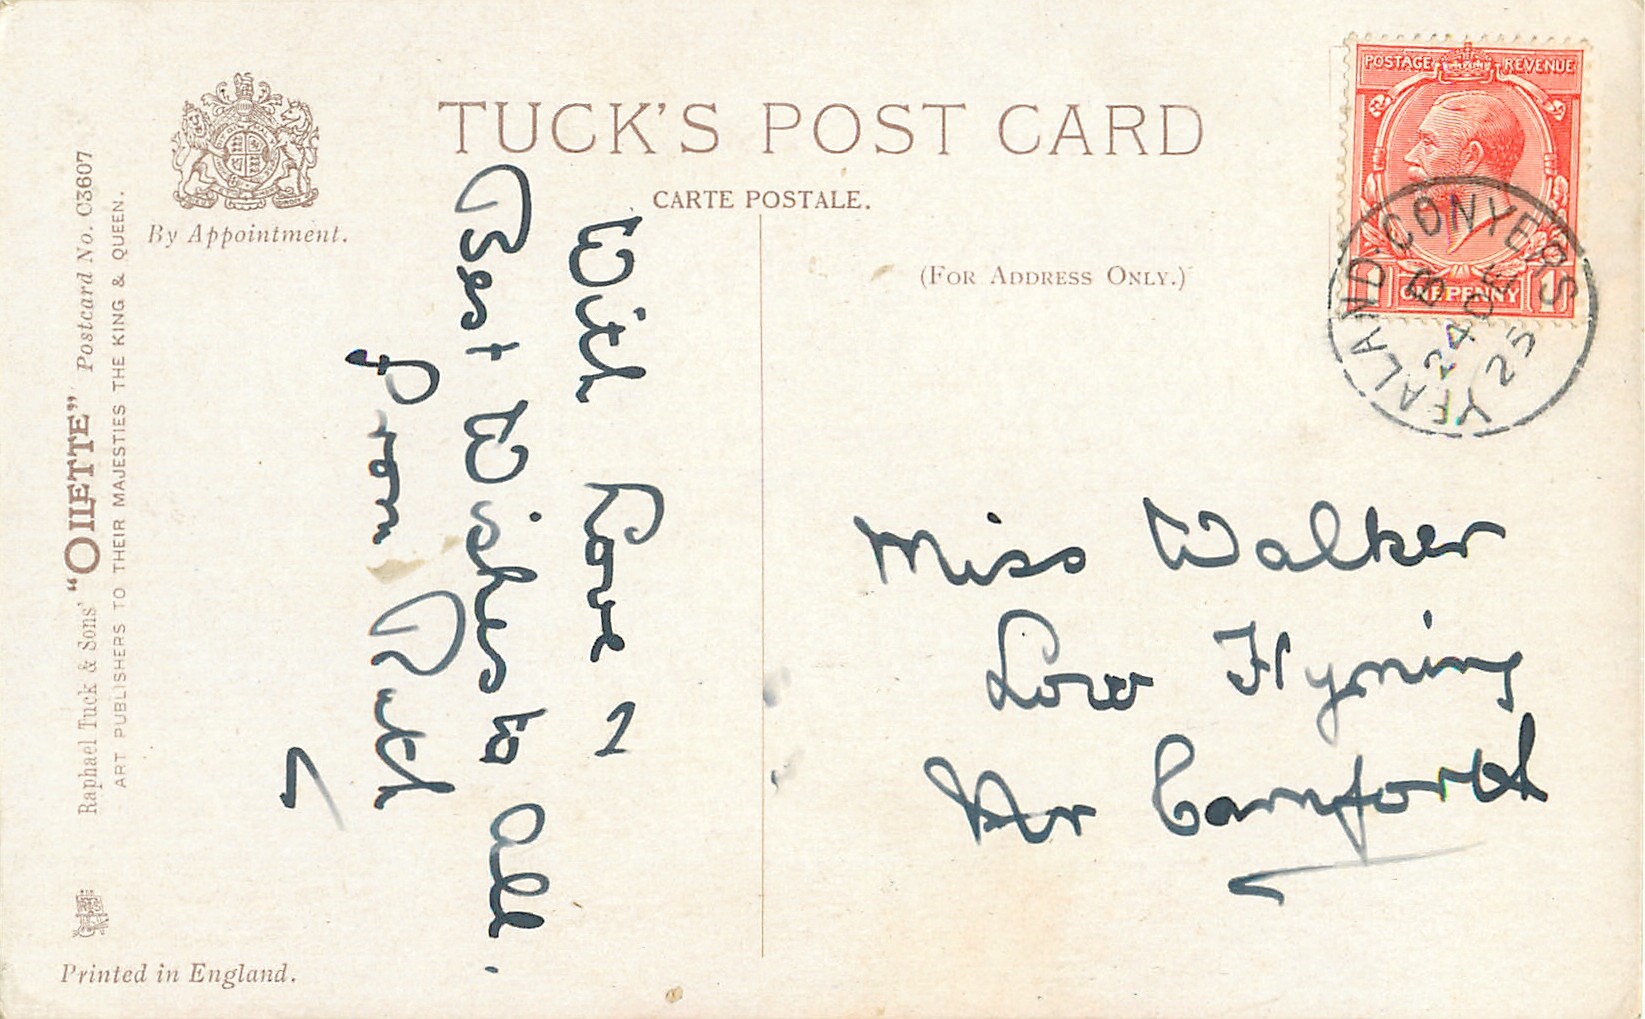 TUCK'S POST CARD
CARTE POSTALE.
(FOR ADDRESS ONLY.)
By Appointment.
Raphael Tuck & Sons' "OILETTE" Postcard No. C3607
ART PUBLISHERS TO THEIR MAJESTIES THE KING & QUEEN.
Printed in England.
POSTAGE REVENUE
ONE PENNY
YEALAND-CONYERS
B
24 DE
25
With Love &
Best Wishes to all.
from Ruth
Miss Walker
Low Hyning
Nr Carnforth